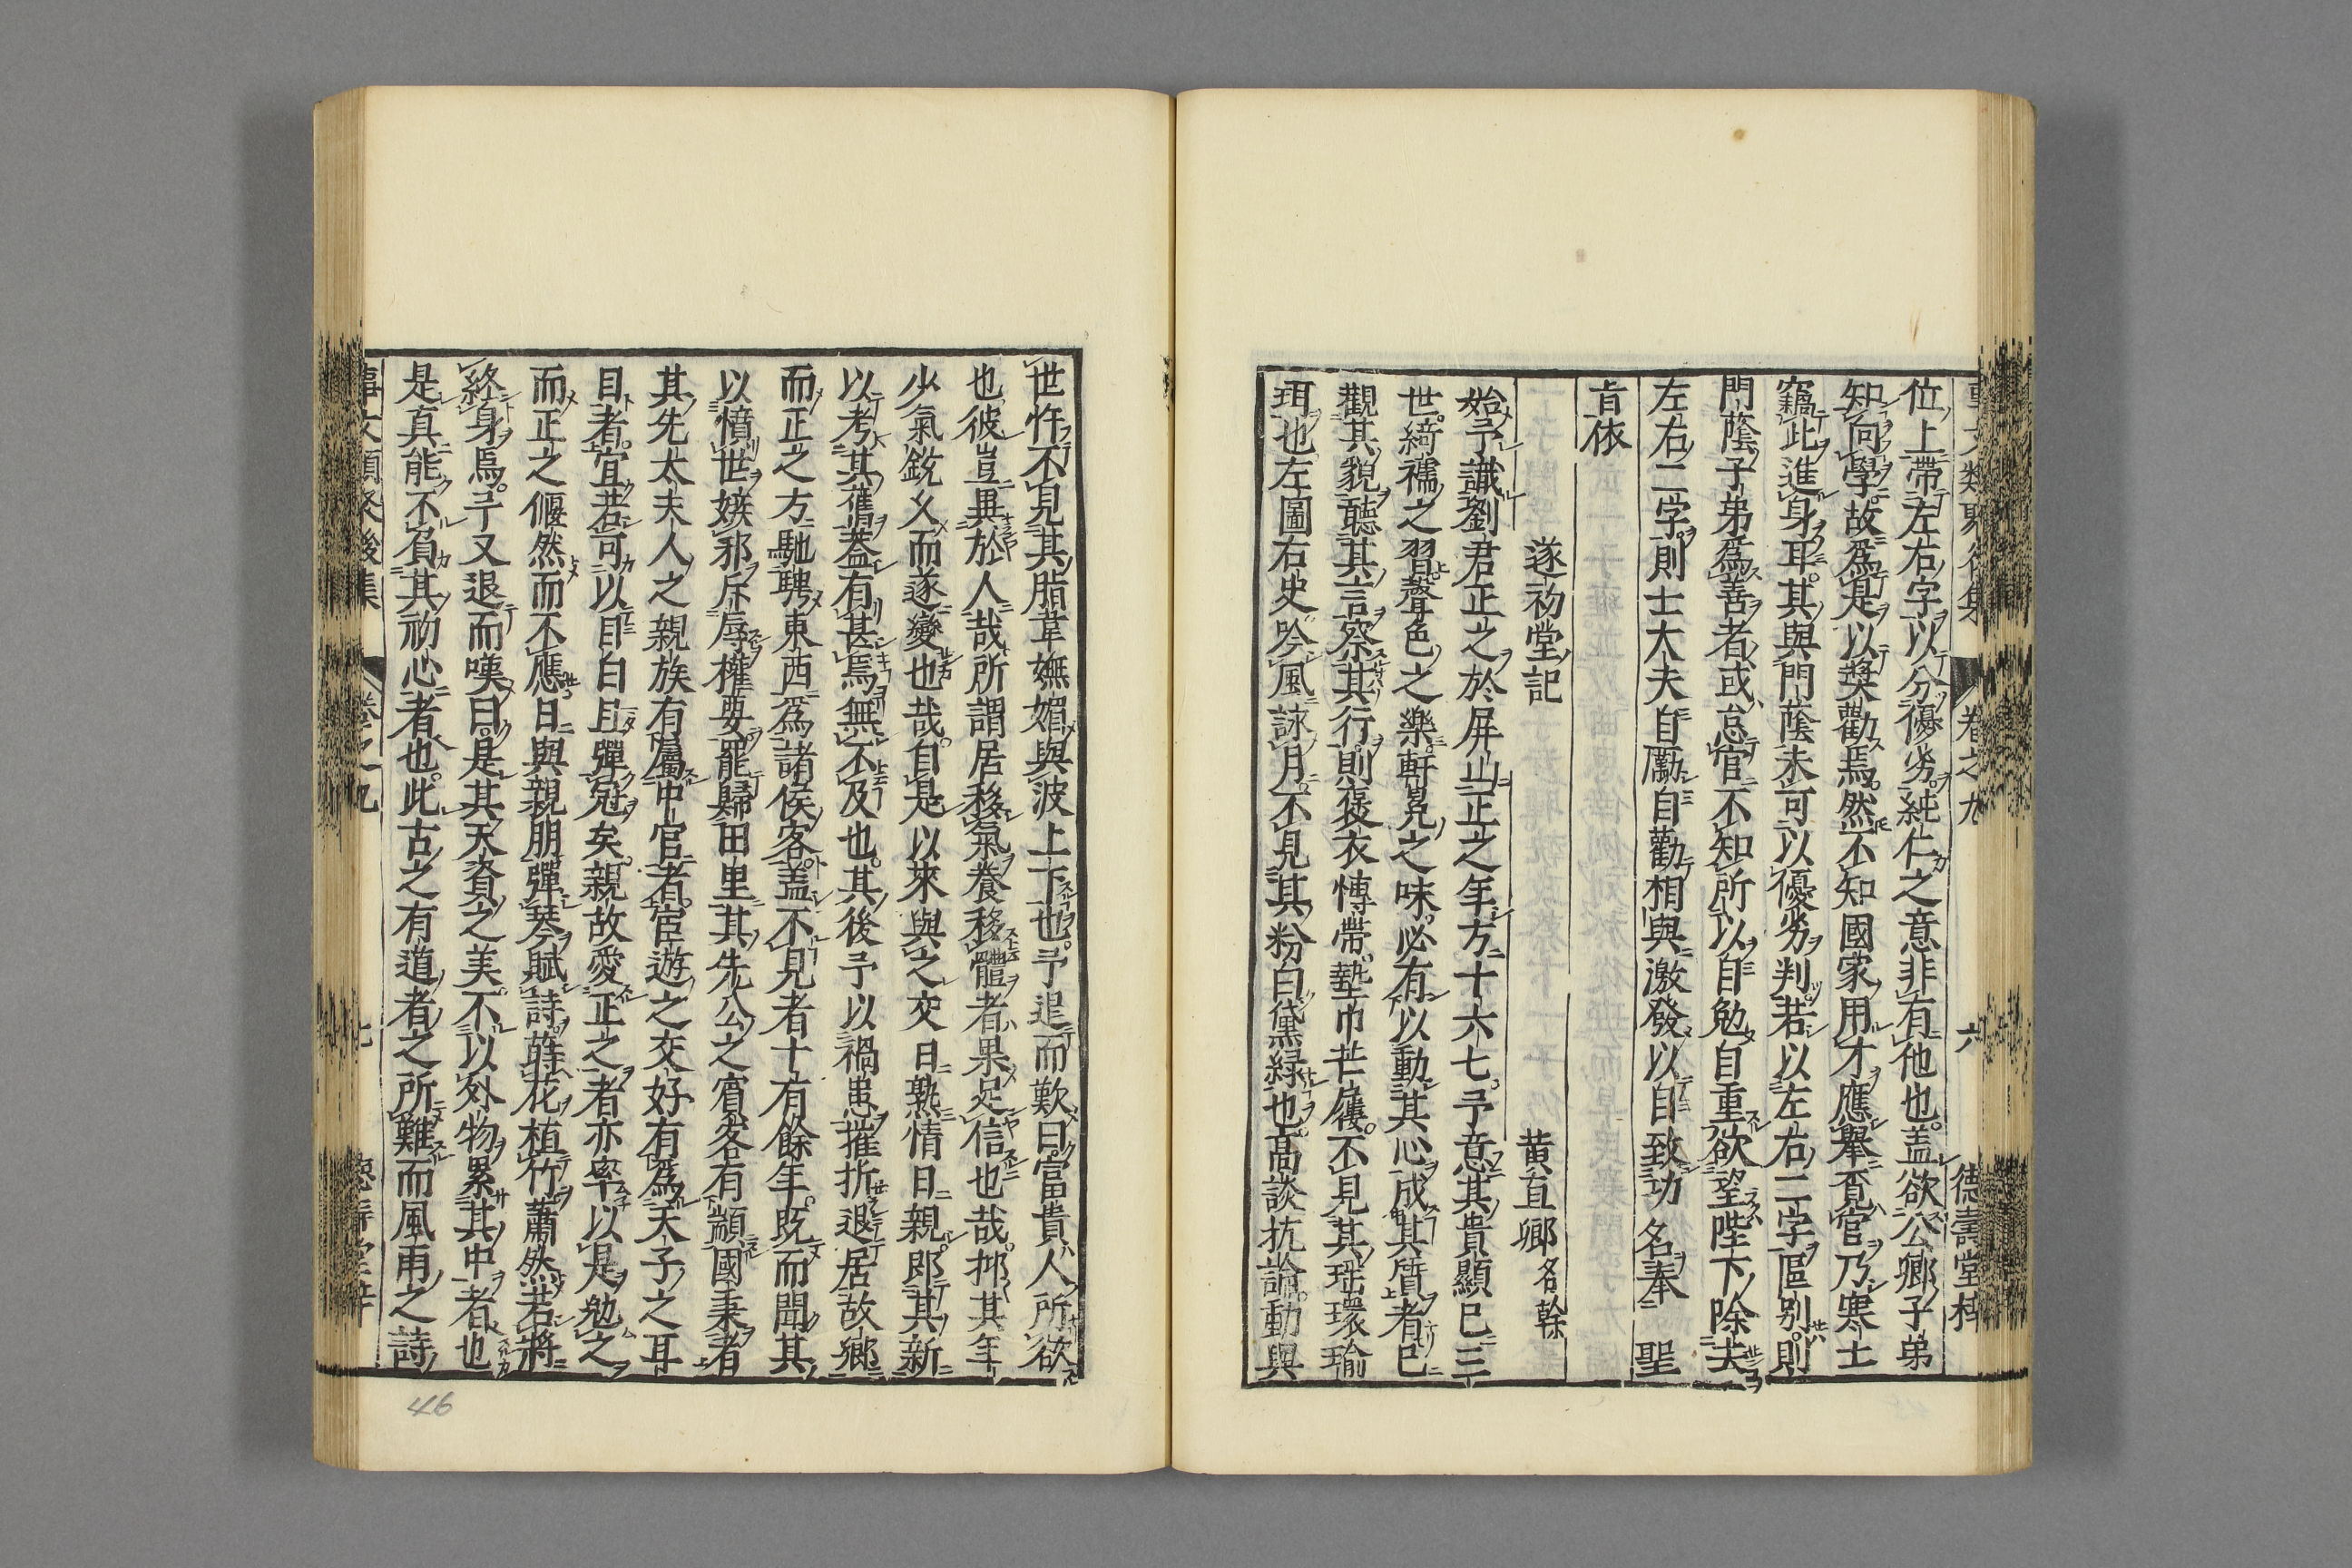 事文類聚後集 卷之九 六 德壽堂梓
位上帶左右字以分優劣純仁之意非有他也盖欲公卿子弟
知向學故爲是以獎勸焉然不知國家用才應舉覔官乃寒士
竊此進身耳其與門蔭未可以優劣判若以左右二字區别則
門蔭子弟爲善者或怠官不知所以自勉自重欲望陛下除去
左右二字則士大夫自勵自勸相與激發以自致功名奉 聖
㫖依
遂初堂記 黄直卿名榦
始予識劉君正之於屏山正之年方十六七予意其貴顯已三
世綺襦之習聲色之樂軒冕之味必有以動其心成其質者已
觀其貌聽其言察其行則褒衣愽帶墊巾芒屨不見其瑶環瑜
珥也左圖右史吟風詠月不見其粉白黛緑也髙談抗論動與
世忤不見其脂韋嫵媚與波上下也予退而歎曰富貴人所欲
也彼豈異於人哉所謂居移氣養移體者果足信也哉抑其年
少氣銳乆而遂變也哉自是以來與之交日熟情日親郎其新
以考其舊蓋有甚焉無不及也其後予以禍患摧折退居故鄉
而正之方馳騁東西爲諸侯客盖不見者十有餘年既而聞其
以憤世嫉邪斥辱權要罷歸田里其先公之賓客有顓國秉者
其先太夫人之親族有屬中官者宦遊之交好有爲天子之耳
目者宜若可以自白且彈冠矣親故愛正之者亦率以是勉之
而正之偃然而不應日與親朋彈琴賦詩蒔花植竹蕭然若將
終身焉予又退而嘆曰是其天資之美不以外物累其中者也
是真能不負其初心者也此古之有道者之所難而風雨之詩
事文類聚後集 卷之九 七 德壽堂梓
46